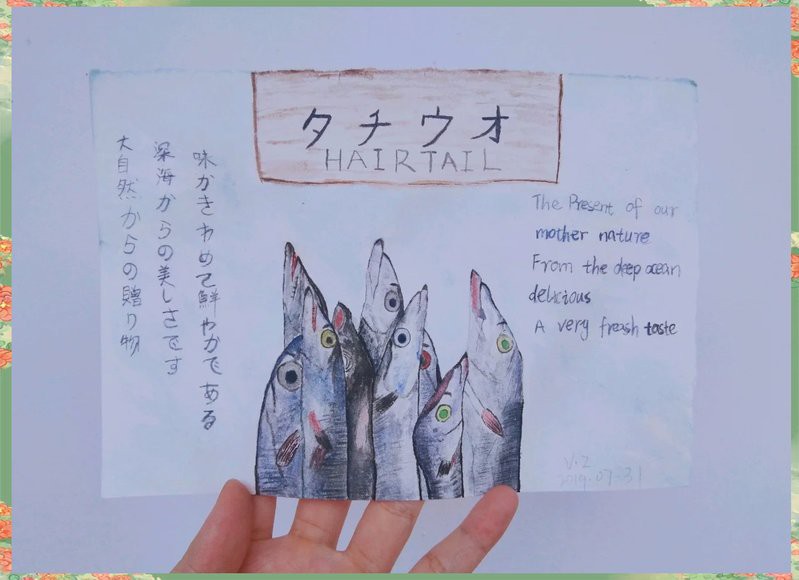 タチウオ
HAIRTAIL
味かきわめて鮮やかである
深海からの美しさです
大自然からの贈り物
The Present of our
mother nature
From the deep ocean
delicious
A very freash taste
2019.07.31